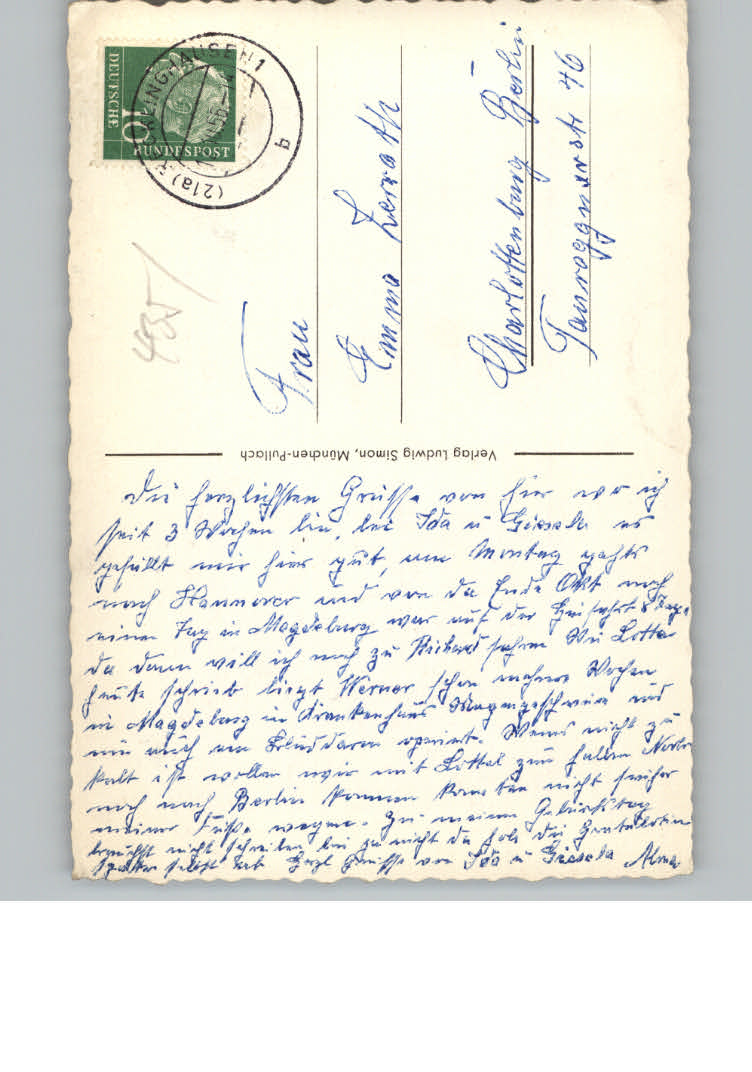 DEUTSCHE
BUNDESPOST
10
(21a) RECKLINGHAUSEN 1
q
435
Frau
Emma Zerrath
Charlottenburg Berlin
Tauroggenerstr 46
Verlag Ludwig Simon, München-Pullach
Die herzlichsten Grüsse von hier wo ich
seit 3 Wochen bin, bei Ida u Giesela es
gefällt mir hier gut, am Montag gehts
nach Hannover und von da Ende Okt noch
einen Tag in Magdeburg war auf der Hinfahrt 8 Tage
da dann will ich noch zu Richard fahren Wie Lotte
heute schrieb liegt Werner schon mehrere Wochen
in Magdeburg im Krankenhaus Magengeschwüre und
nun auch am Blinddarm operiert. Wenns nicht zu
kalt ist wollen wir mit Lottel zum
noch nach Berlin kommen konnten nicht früher
meiner Füsse wegen. Zu meinem Geburtstag
brauchst nicht schreiben bin ja nicht da hole die Gratulation
später selbst ab Herzl Grüsse von Ida u Giesela Alma